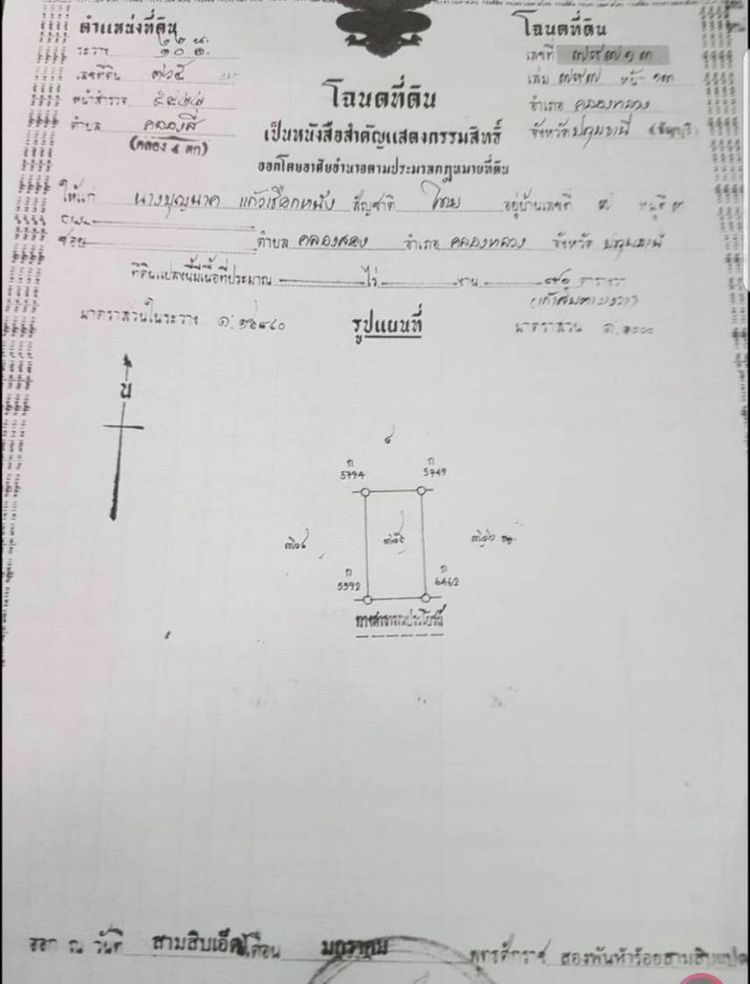 ตำแหน่งที่ดิน
ระวาง
เลขที่ดิน ๗๖๕
หน้าสำรวจ ๕๔๒๘
ตำบล คลองสี่
(คลอง ๔ ตก)
โฉนดที่ดิน
เป็นหนังสือสำคัญแสดงกรรมสิทธิ์
ออกโดยอาศัยอำนาจตามประมวลกฎหมายที่ดิน
โฉนดที่ดิน
เลขที่
เล่ม ๗๙๗ หน้า ๑๓
อำเภอ คลองหลวง
จังหวัดปทุมธานี
ให้แก่ นางบุญนาค แก้วเชือกหนัง สัญชาติ ไทย อยู่บ้านเลขที่
ถนน
ซอย ตำบล คลองสอง อำเภอ คลองหลวง จังหวัด ปทุมธานี
ที่ดินแปลงนี้มีเนื้อที่ประมาณ ไร่ งาน ๙๐ ตารางวา
(เก้าสิบตารางวา)
มาตราส่วนในระวาง รูปแผนที่ มาตราส่วน ๑:๑๐๐๐
น
๔
ก
5794
ก
5749
ก
5592
ก
6462
ทางสาธารณประโยชน์
ออก ณ วันที่ สามสิบเอ็ด เดือน มกราคม พุทธศักราช สองพันห้าร้อยสามสิบแปด